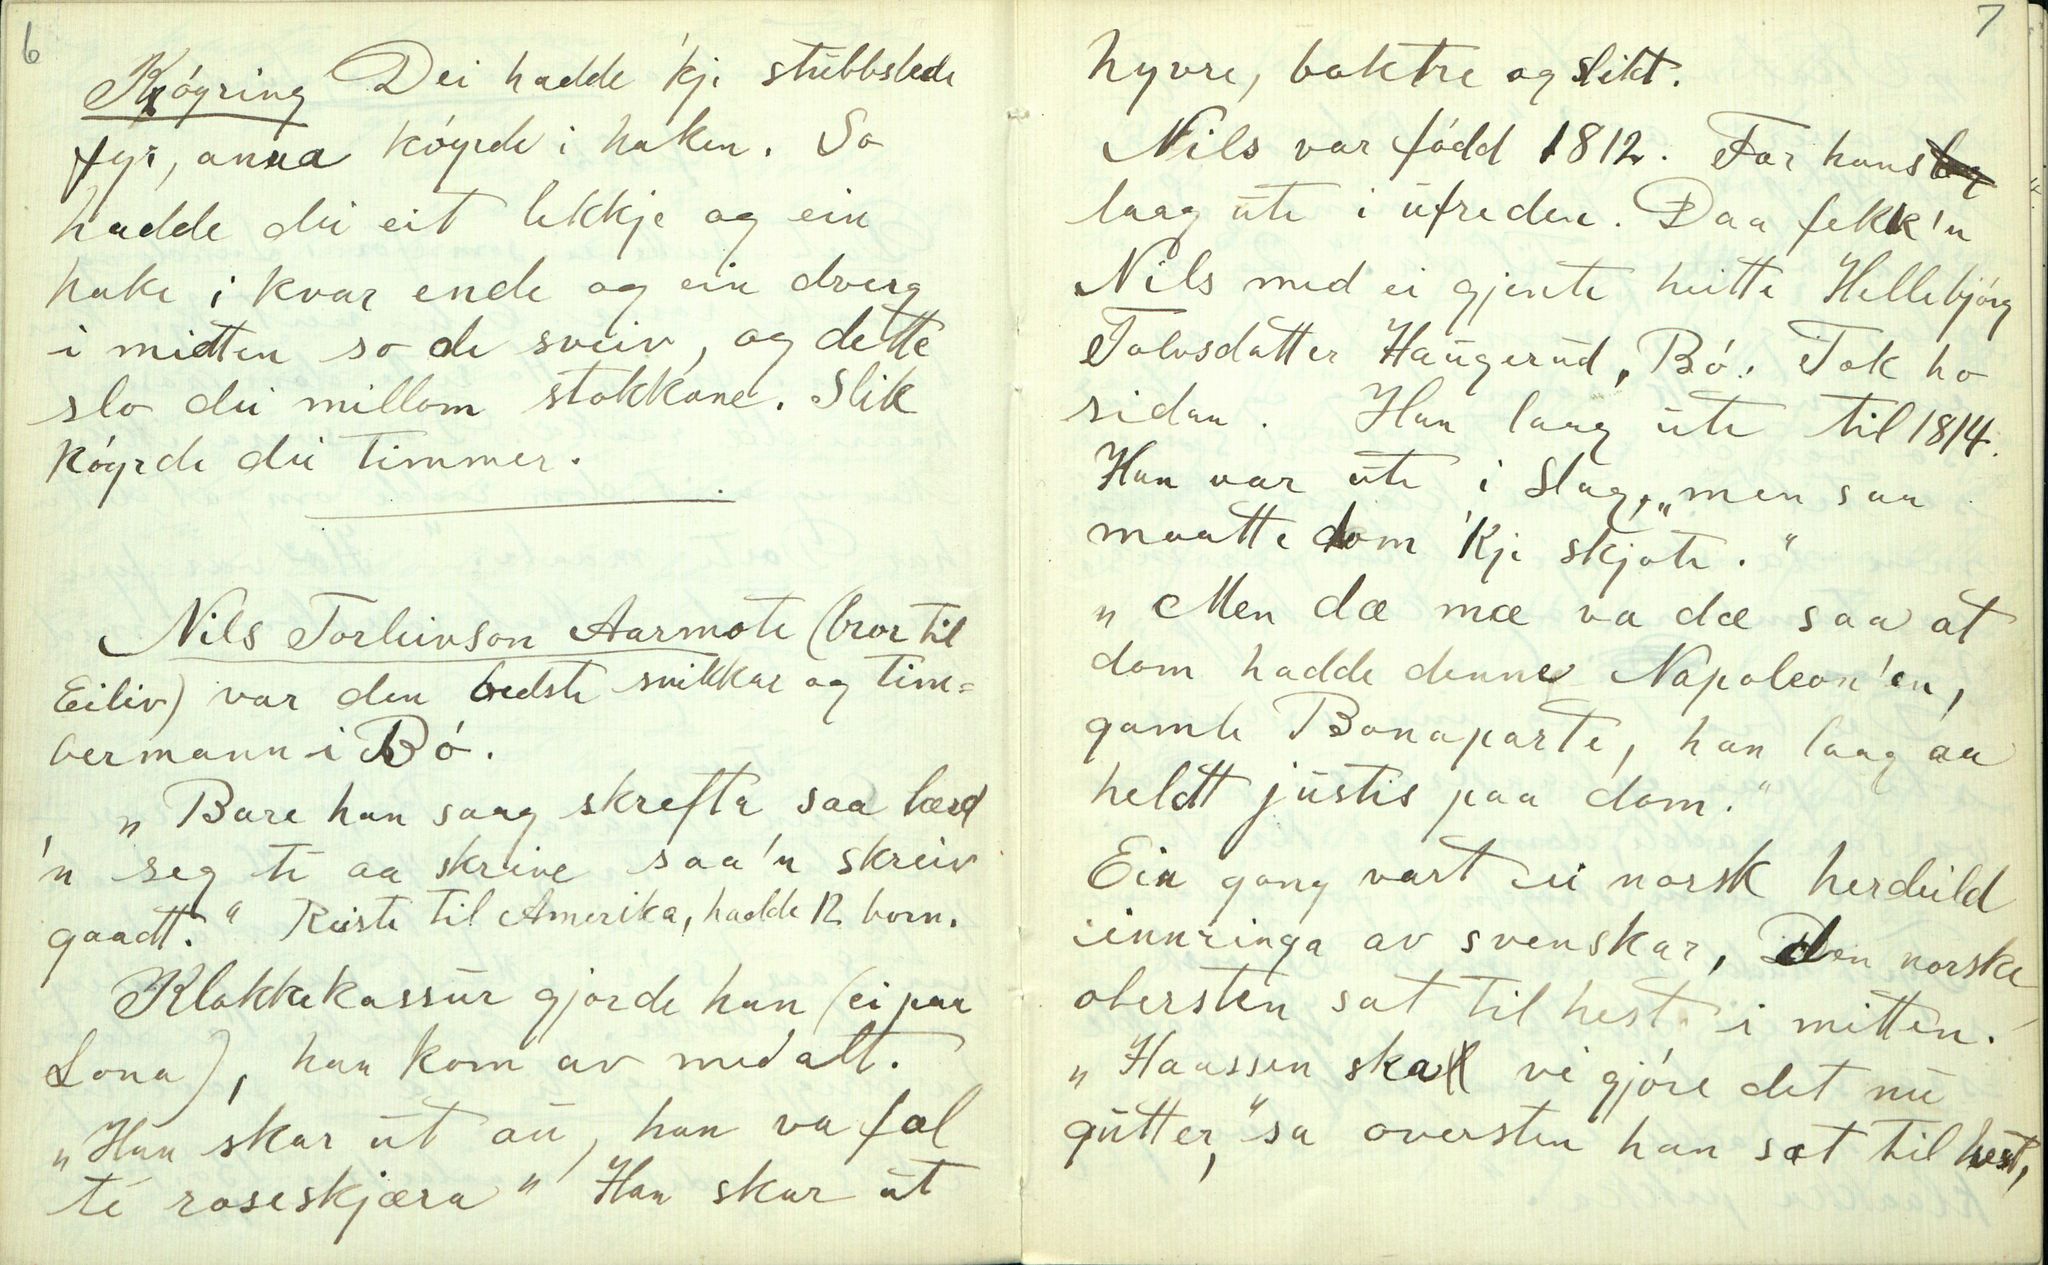 6
Køyring Dei hadde 'kje stubbslede
fyr, anna køyrde i haken. So
hadde dei eit lekkje og ein
hake i kvar ende og ein dverg
i midtten so de sveiv, og dette
slo dei millom stokkane. Slik
køyrde dei timmer.
Nils Torleivson Aarmote (bror til
Eiliv) var den bedste snikkar og tim=
bermann i Bó.
„Bare han saag skrefta saa lærd
'n seg te aa skrive saa'n skreiv
gaadt." Reiste til Amerika, hadde 12 born.
Klokkekassur gjorde han (ei paa
Lona), han kom av med alt.
„Han skar ut au, han va fal
te roseskjæra" Han skar ut
7
hyvre, boktre og slikt.
Nils var fódd 1812. Far hans
laag ute i ufreden. Daa fekk'n
Nils med ei gjente heitte Hellebjórg
Tolvsdatter Haugerud, Bó. Tok ho
sidan. Han laag ute til 1814.
Han var ute i slag, „men saa
maatte dom 'kje skjote."
„Men dæ mæ va dæ saa at
dom hadde denne Napoleon'en,
gamle Bonaparte, han laag aa
heldt justis paa dom."
Ein gong vart ei norsk herdeild
innringa av svenskar, den norske
obersten sat til hest i mitten.
„Haassen skal vi gjóre det nu
gutter," sa oversten han sat til hest,